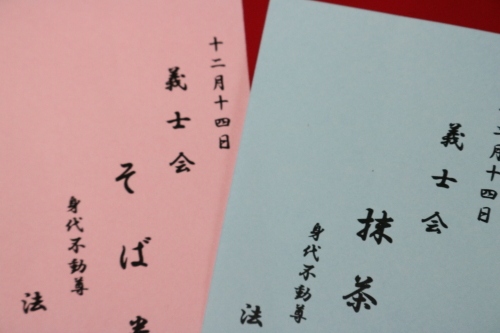 十二月十四日
義士会
そば
身代不動尊
法
二月十四日
義士会
抹茶
身代不動尊
法